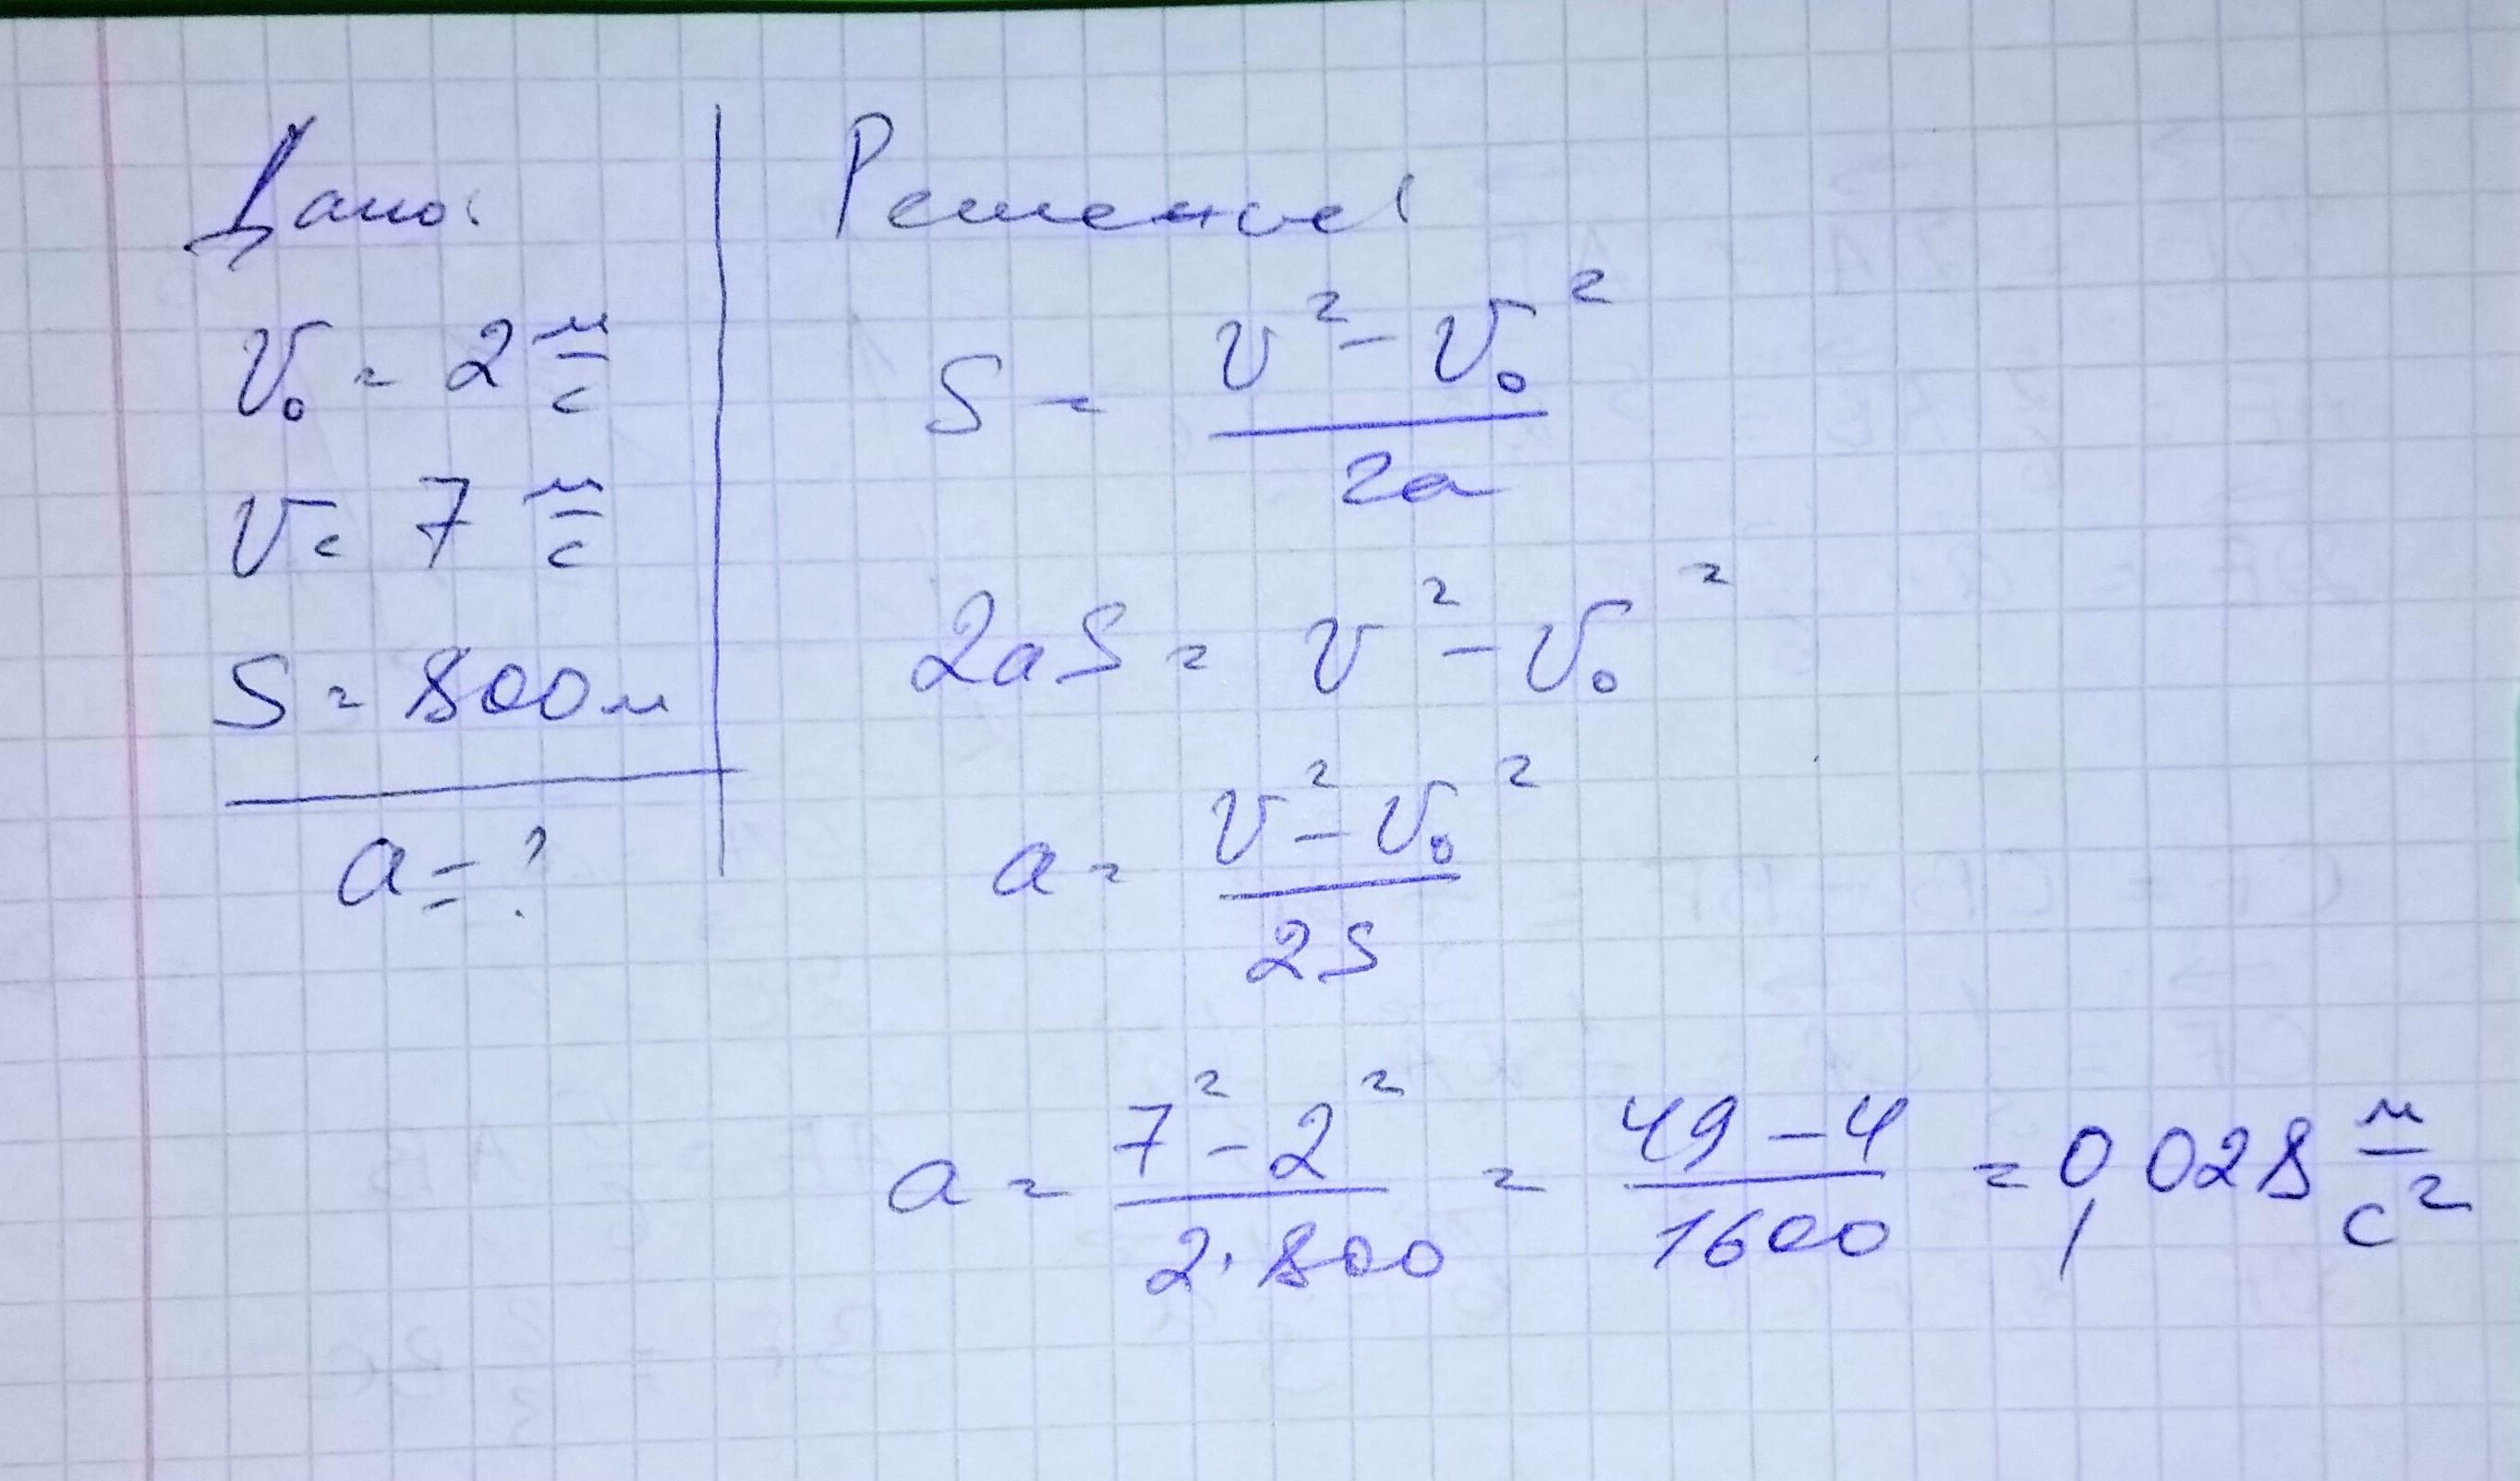 Дано:
v₀ = 2 м/с
v = 7 м/с
S = 800 м
a = ?
Решение:
S = (v² - v₀²)/2a
2aS = v² - v₀²
a = (v² - v₀²)/2S
a = (7² - 2²)/(2·800) = (49 - 4)/1600 = 0,028 м/с²